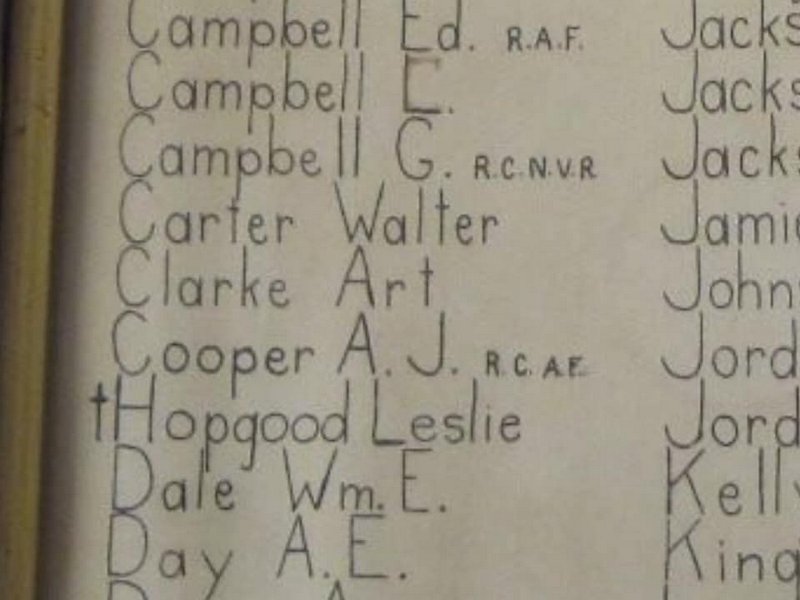 Campbell Ed. R.A.F.
Campbell E.
Campbell G. R.C.N.V.R
Carter Walter
Clarke Art
Cooper A.J. R.C.A.F.
†Hopgood Leslie
Dale Wm. E.
Day A.E.
Jacks
Jacks
Jacks
Jami
John
Jord
Jord
Kelly
King